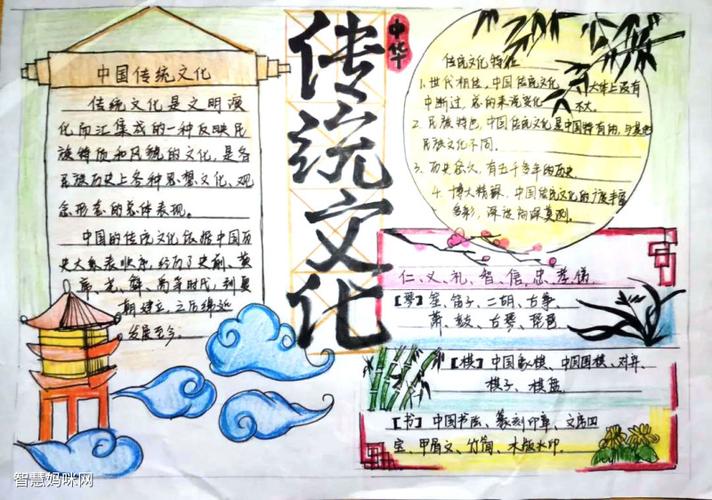 中国传统文化
传统文化是文明演
化而汇集成的一种反映民
族特质和风貌的文化，是各
民族历史上各种思想文化、观
念形态的总体表现。
中国的传统文化依据中国历
史大系表顺序，经历了史前、黄
帝、尧、舜、禹等时代，到夏
朝建立，之后绵延
发展至今
中华
传统文化
传统文化特征
1.世代相传，中国传统文化 大体上没有
中断过，总的来说变化 不大。
2.民族特色，中国传统文化是中国特有的，与其他
民族文化不同。
3.历史悠久，有五千多年的历史。
4.博大精深，中国传统文化的广度丰富
多彩，深度高深莫测。
仁、义、礼、智、信、忠、孝、悌
【琴】笙、笛子、二胡、古筝
萧、鼓、古琴、琵琶
【棋】中国象棋、中国围棋、对弈、
棋子、棋盘
【书】中国书法、篆刻印章、文房四
宝、甲骨文、竹简、木版水印.
智慧妈咪网